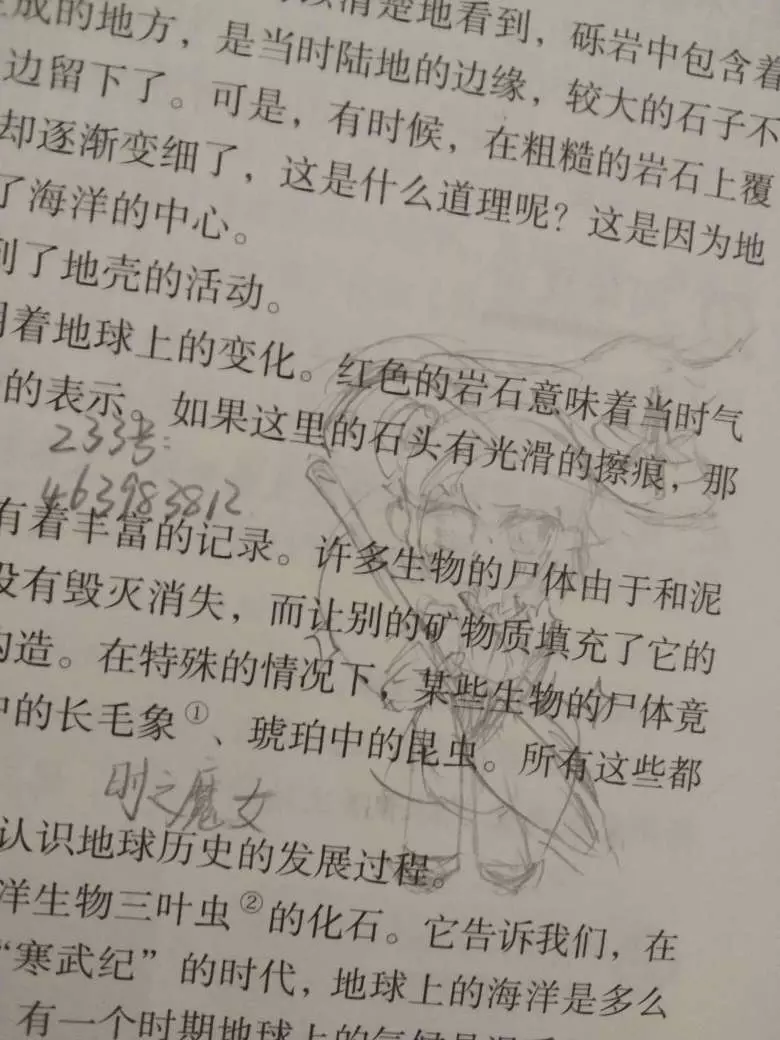 清楚地看到，砾岩中包含着
成的地方，是当时陆地的边缘，较大的石子不
边留下了。可是，有时候，在粗糙的岩石上覆
却逐渐变细了，这是什么道理呢？这是因为地
了海洋的中心。
到了地壳的活动。
着地球上的变化。红色的岩石意味着当时气
的表示。如果这里的石头有光滑的擦痕，那
233号：
463983812
有着丰富的记录。许多生物的尸体由于和泥
没有毁灭消失，而让别的矿物质填充了它的
构造。在特殊的情况下，某些生物的尸体竟
中的长毛象①、琥珀中的昆虫。所有这些都
时之魔女
认识地球历史的发展过程。
洋生物三叶虫②的化石。它告诉我们，在
“寒武纪”的时代，地球上的海洋是多么
有一个时期地球上的气候是